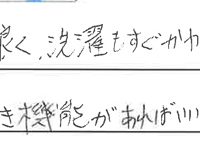 良く、洗濯もすぐかわ
き機能があればいい